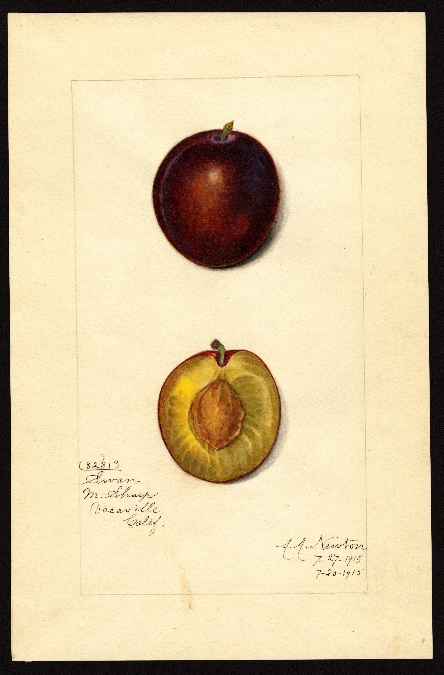 82813
Swan
M. Sharp
Vacaville
Calif.
A.A. Newton
7-27-1915
7-20-1915